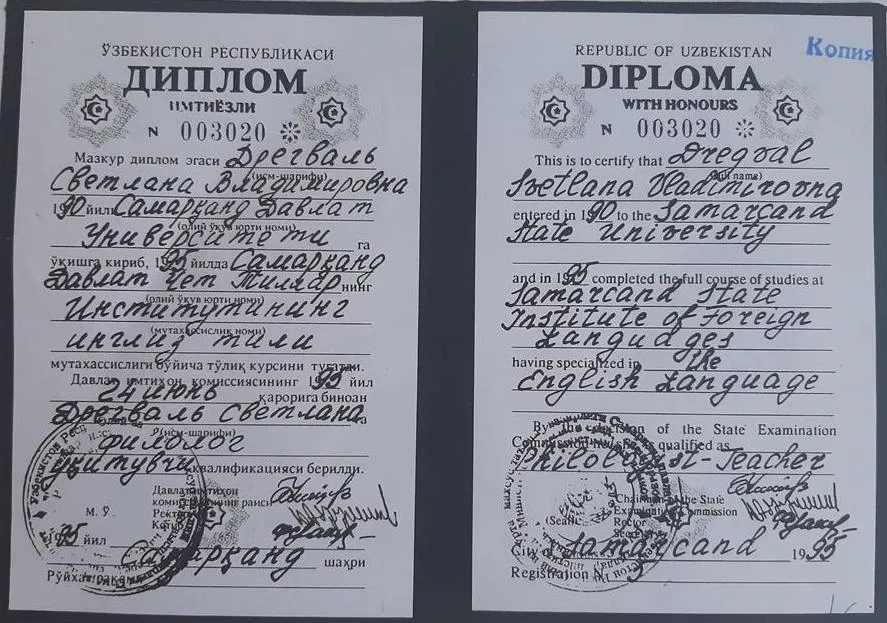 ЎЗБЕКИСТОН РЕСПУБЛИКАСИ
ДИПЛОМ
ИМТИЁЗЛИ
N 003020
Мазкур диплом эгаси Дрегваль
(исм-шарифи)
Светлана Владимировна
1990 йили Самарқанд Давлат
(олий ўқув юрти номи)
Университети га
ўқишга кириб, 1995 йилда Самарқанд
Давлат Чет Тиллар нинг
(олий ўқув юрти номи)
Институтининг
(мутахассислик номи)
инглиз тили
мутахассислиги бўйича тўлиқ курсини тугатди.
Давлат имтиҳон комиссиясининг 1995 йил
24 июнь қарорига биноан
Дрегваль Светлана га
(исм-шарифи)
филолог
ўқитувчи квалификацияси берилди.
Давлат имтиҳон
комиссиясининг раиси
Ректор
Котиб
М. Ў.
1995 йил
Самарқанд шаҳри
Рўйхат рақами
REPUBLIC OF UZBEKISTAN
Копия
DIPLOMA
WITH HONOURS
N 003020
This is to certify that Dregval
(full name)
Svetlana Vladimirovna
entered in 1990 to the Samarcand
State University
and in 1995 completed the full course of studies at
Samarcand State
Institute of Foreign
Languages
having specialized in the
English Language
By the decision of the State Examination
Commission qualified as
Philologist-Teacher
Chairman of the State
Examination Commission
(Seal) Rector
Secretary
City of Samarcand 1995
Registration N